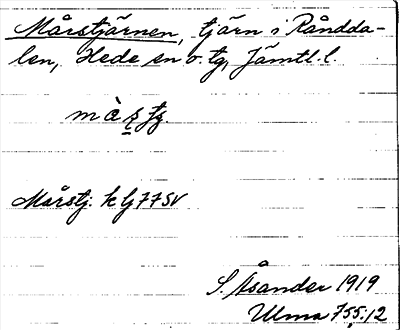 Mårstjärnen, tjärn i Råndda-
len, Hede sn o. tg, Jämtl. l.
Mårstj. k lj 77SV
S. Åsander 1919
Ulma 755:12